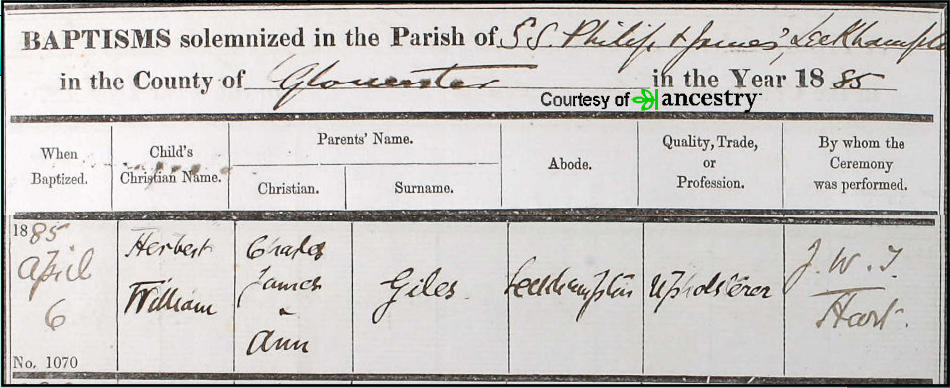 BAPTISMS solemnized in the Parish of S.S. Philip & James', Leckhampt
in the County of Gloucester in the Year 1885
Courtesy of ancestry
When Baptized.
Child's Christian Name.
Parents' Name.
Christian.
Surname.
Abode.
Quality, Trade, or Profession.
By whom the Ceremony was performed.
1885
April
6
No. 1070
Herbert
William
Charles
James
&
Ann
Giles
Leckhampton
Upholsterer
J. W. I.
Hart.